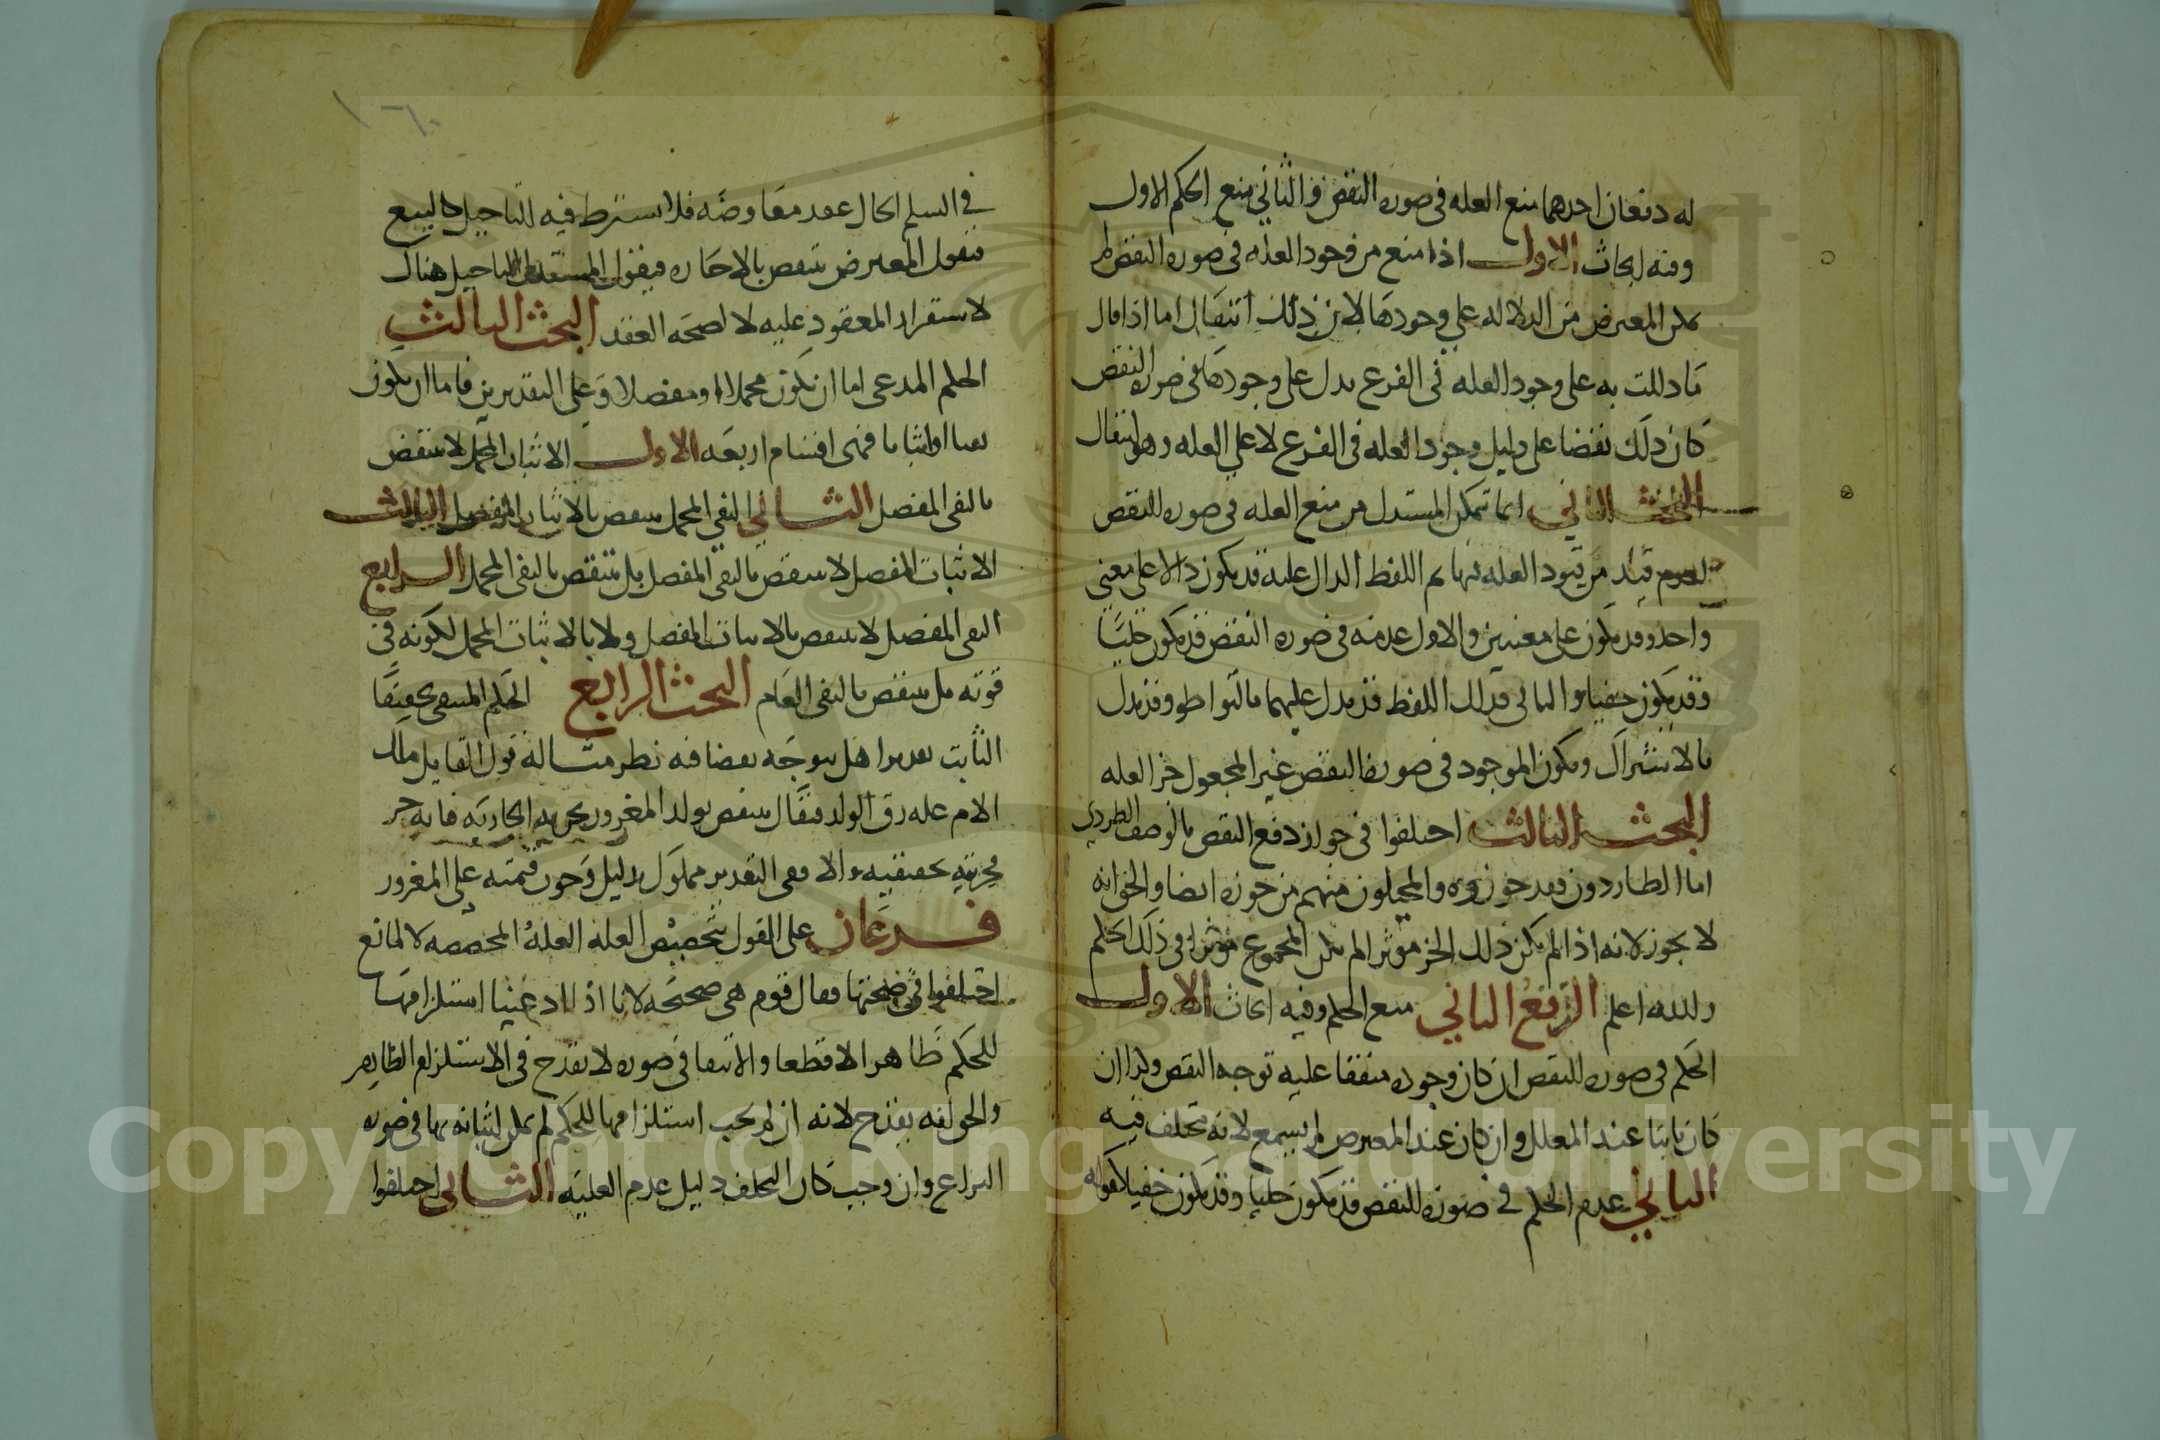 له دفعان احدهما منع العله في صوره النقض والثاني منع الحكم الاول
وفيه ابحاث الاول اذا منع من وجود العله في صوره النقض لم
يمكن المعترض من الدلاله علي وجودها لان ذلك انتقال اما اذا قال
ما دللت به علي وجود العله في الفرع يدل علي وجودها في صوره النقض
كان ذلك نقضا علي دليل وجود العله في الفرع لا علي العله وهو انتقال
البحث الثاني انما تمكن المستدل من منع العله في صوره النقض
لعدم قيد من قيود العله فيها ثم اللفظ الدال عليه قد يكون دالا علي معني
واحد وقد يكون علي معنيين والاول عدمه في صوره النقض قد يكون جليا
وقد يكون خفيا والثاني فذلك اللفظ قد يدل عليهما بالتواطو وقد يدل
بالاشتراك ويكون الموجود في صوره النقض غير المجعول جزا لعله
البحث الثالث اختلفوا في جواز دفع النقض بالوصف الطردي
اما الطاردون فقد جوزوه والمحيلون منهم من جوزه ايضا والحق انه
لا يجوز لانه اذا لم يكن ذلك الجز موثرا لم يكن المجموع موثرا في ذلك الحكم
والله اعلم الدفع الثاني منع الحكم وفيه ابحاث الاول
الحكم في صوره النقض ان كان وجوده متفقا عليه توجه النقض وكذا ان
كان ثابتا عند المعلل وان كان عند المعترض لم يسمع لانه تخلف فيه
الثاني عدم الحكم في صوره النقض قد يكون جليا وقد يكون خفيا كقوله
في السلم الحال عقد معاوضه فلا يشترط فيه التاجيل كالبيع
فيقول المعترض ينتقض بالاجاره فيقول المستدل التاجيل هناك
لاستقرار المعقود عليه لا لصحه العقد البحث الثالث
الحكم المدعي اما ان يكون مجملا او مفصلا وعلي التقديرين فاما ان يكون
نفيا او اثباتا فهي اقسام اربعه الاول الاثبات المجمل لا ينتقض
بالنفي المفصل الثاني النفي المجمل ينتقض بالاثبات المفصل الثالث
الاثبات المفصل لا ينتقض بالنفي المفصل بل ينتقض بالنفي المجمل الرابع
النفي المفصل لا ينتقض بالاثبات المفصل ولا بالاثبات المجمل لكونه في
قوته بل ينتقض بالنفي العام البحث الرابع الحكم المنفي تحقيقا
الثابت تقديرا هل يتوجه نقضا فيه نظر مثاله قول القايل ملك
الام عله رق الولد فيقال ينتقض بولد المغرور بحريه الجاريه فانه حر
حريته حقيقيه والا ففي التقدير مملوك بدليل وجوب قيمته علي المغرور
فرعان علي القول بتخصيص العله العله المخصصه لا لمانع
اختلفوا في صحتها فقال قوم هي صحيحه لانا اذا ادعينا استلزامها
للحكم ظاهرا لا قطعا والانتفا في صوره لا يقدح في الاستلزام الظاهر
والحق انه يقدح لانه ان لم يجب استلزامها للحكم لم يمكن اثباته بها في صوره
النزاع وان وجب كان التخلف دليل عدم العليه الثاني اختلفوا
Copyright © King Saud University